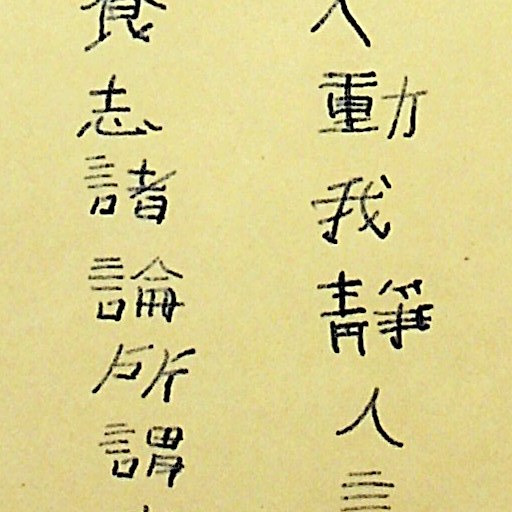 人動我靜人言
養志諸論所謂